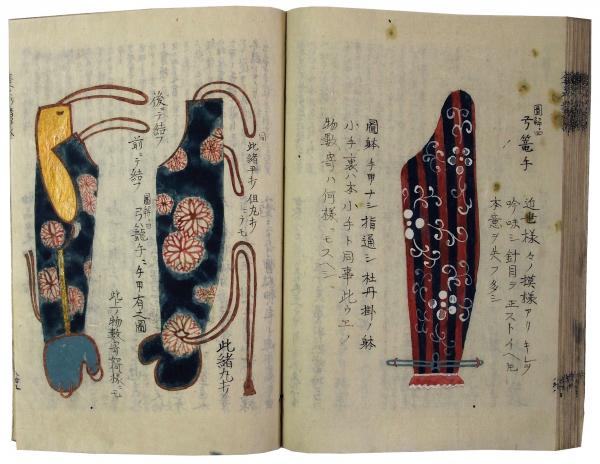 圖解ノ四
弓篭手
近世様々ノ模様アリキレヲ
吟味シ針目ヲ正ストイヘ𪜈
本意ヲ失フ多シ
圖躰手甲ナシ指通シ杜丹掛ノ躰
小手ノ裏ハ本小手ト同事此ウエノ
物數寄ハ何様ニモスヘシ
此緒平打但丸打ニテモ
此緒丸打
後ニテ結フ
前ニテ結フ
圖解ノ四
弓籠手ニ手甲有之圖
此上ノ物數寄何様ニモ